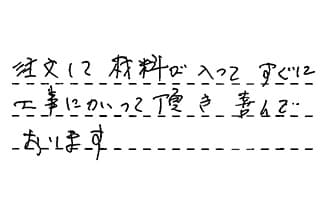 注文して 材料が入って すぐに
工事にかかって頂き 喜んで
おります